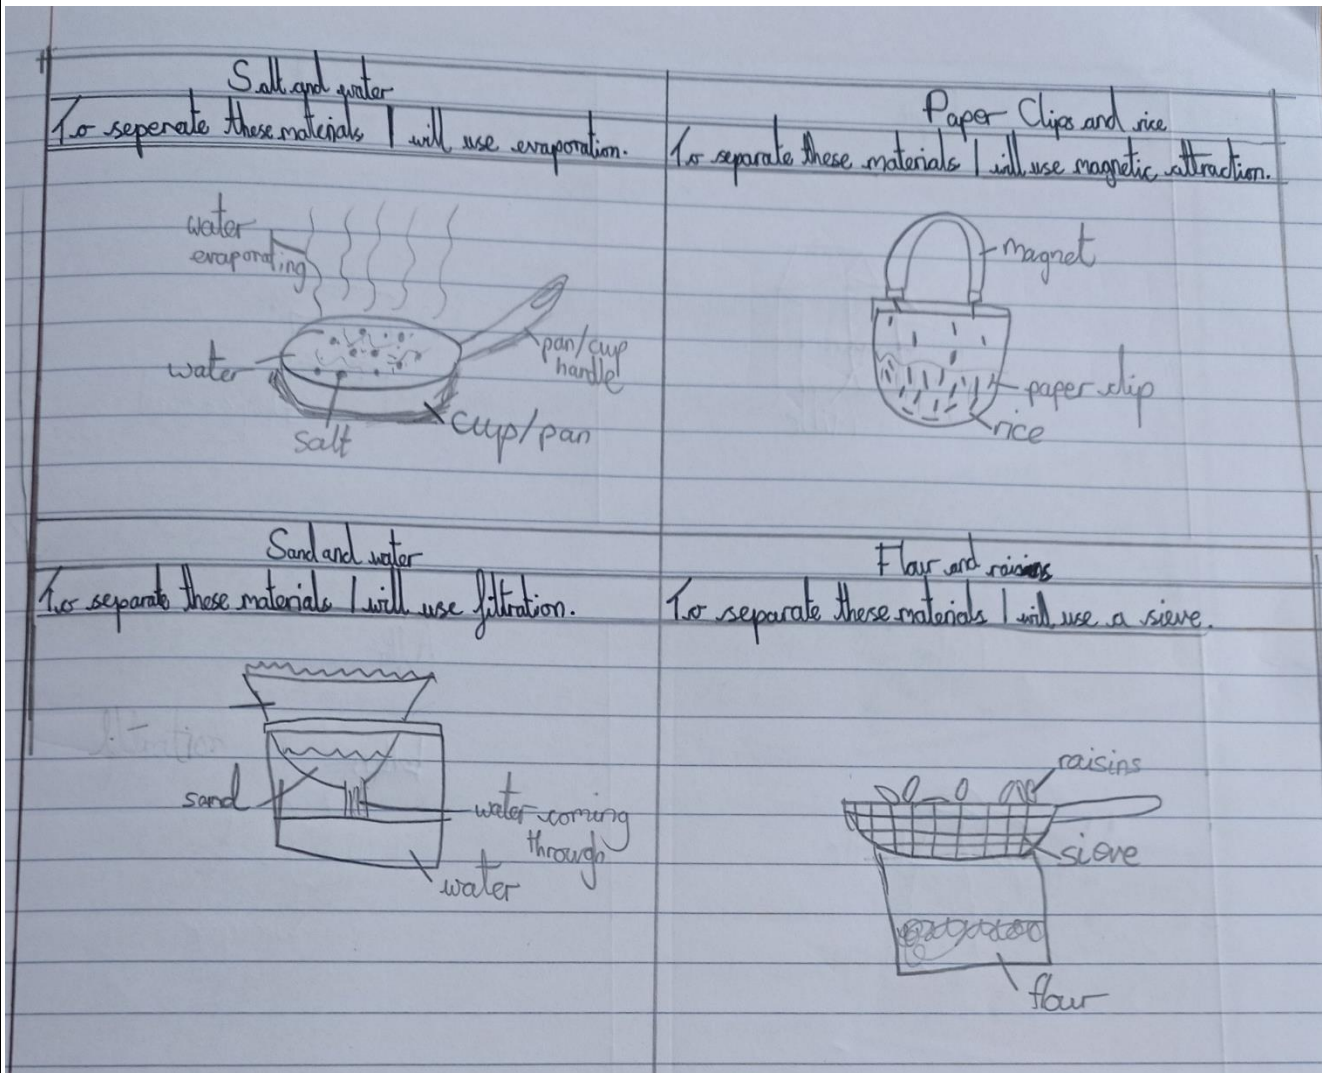 Salt and water
To seperate these materials I will use evaporation.
water
evaporating
water
salt
pan/cup
handle
cup/pan
Paper Clips and rice
To separate these materials I will use magnetic attraction.
magnet
paper clip
rice
Sand and water
To separate these materials I will use filtration.
sand
water coming
through
water
Flour and raisins
To separate these materials I will use a sieve.
raisins
sieve
flour